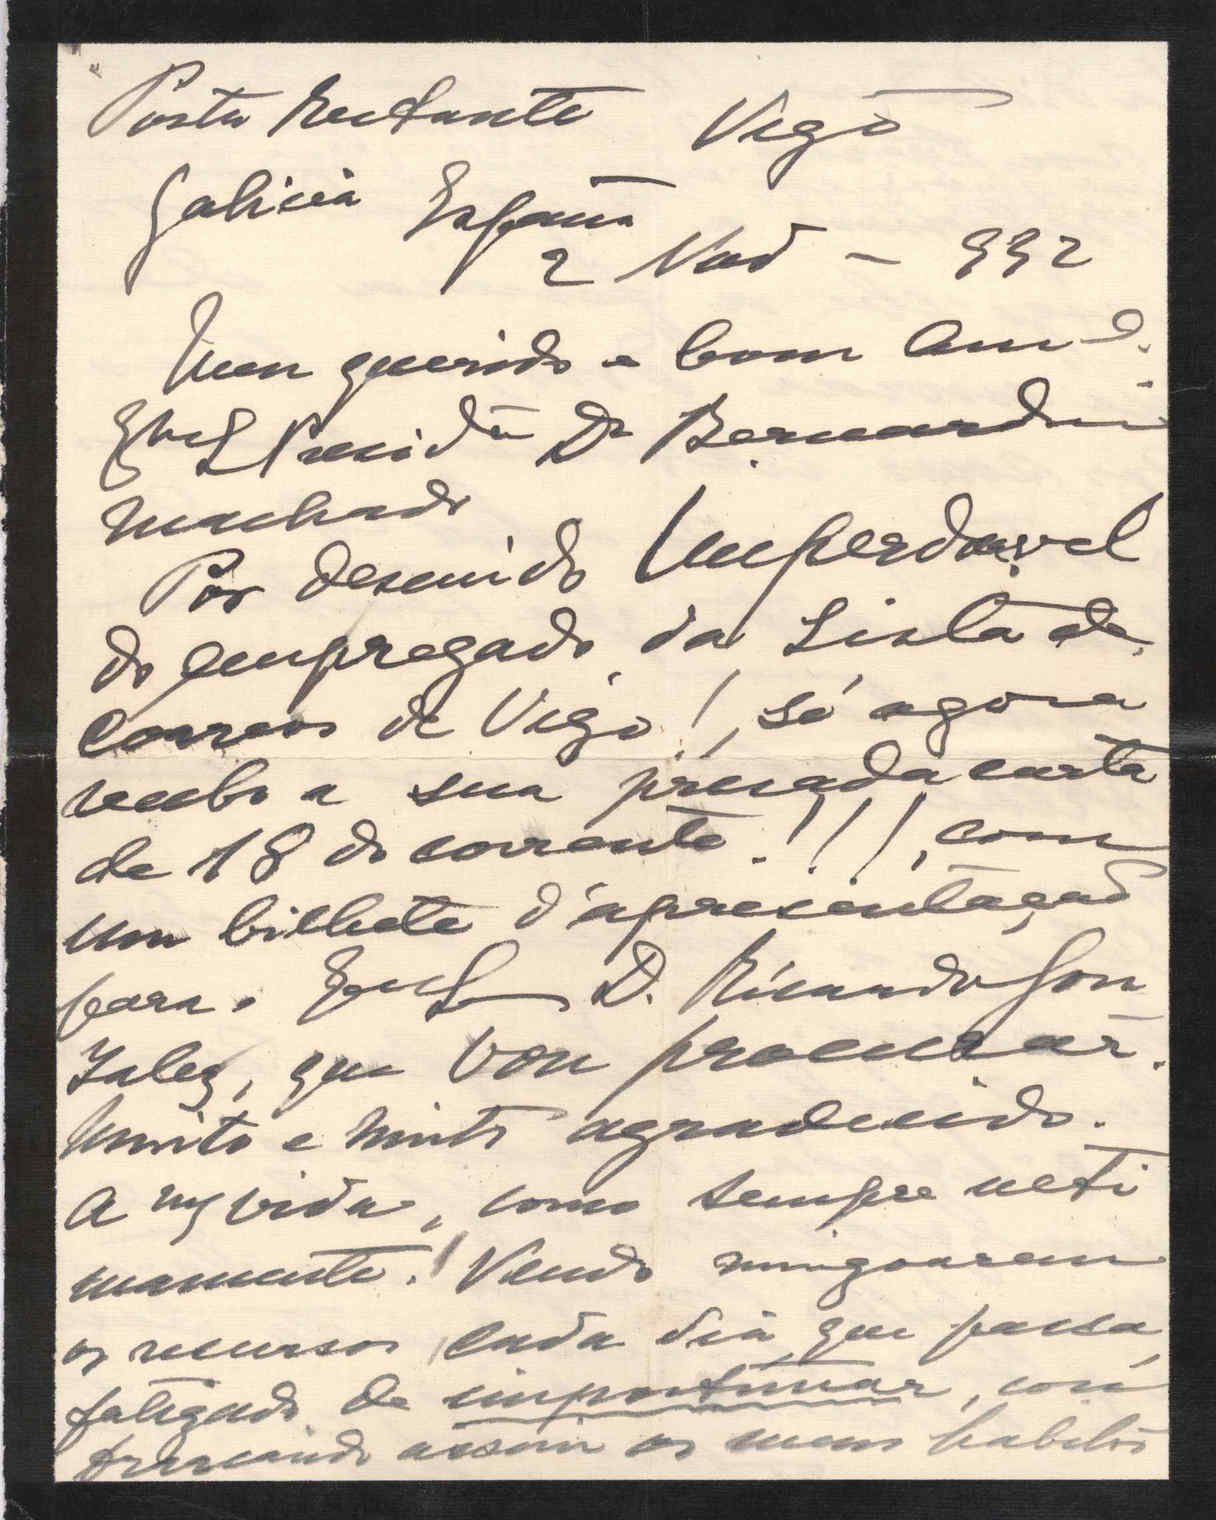 Posta Restante Vigo
Galicia España
2 Nov - 932
Meu querido e bom Am.o
Exmo Sr Presidte Dr Bernardino
Machado
Por descuido Imperdoavel
do empregado da Lista de
Correos de Vigo!, só agora
recebo a sua presada carta
de 18 do corrente!!!, com
um bilhete d'apresentação
para o Exmo Sr D. Ricardo Gon
zalez, que vou procurar.
Muito e muito agradecido.
A m/ vida, como sempre ulti
mamente! Vendo mingoarem
os recursos cada dia que passa,
fatigado de importunar, con
trariando assim os meus habitos